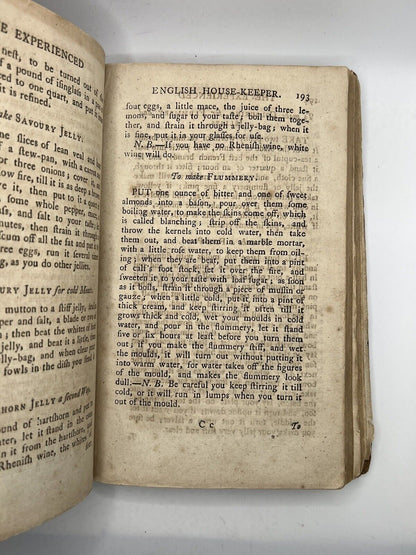 E EXPERIENCED
nest, to be turned out of
f a pound of isinglass in a p
ced to one quart, and put in
it is refined.
make SAVOURY JELLY.
slices of lean veal and
f a stew-pan, with a carrot
r three onions; cover it
low fire, till it is as deep a
ve it, then put to it a quart
some whole pepper, mace,
, and salt to your taste;
scum off all the fat and put
ree eggs, run it several time
, as you do other jellies.
OURY JELLY for cold Meats.
mutton to a stiff jelly,
pper and salt, a blade or two
; then beat the whites of
elly, and beat it a little
elly-bag, and when clear
fowls in the dish you send
SHORN JELLY a second Way.
ound of hartshorn and put
ater, let it stand in the
it from the hartshorn, and
Rhenish wine, the whites
ENGLISH HOUSE-KEEPER. 193
four eggs, a little mace, the juice of three le-
mons, and sugar to your taste; boil them toge-
ther, and strain it through a jelly-bag; when it
is fine, put it in your glasses for use.
N. B.—If you have no Rhenish wine, white
wine will do.
To make FLUMMERY.
PUT one ounce of bitter and one of sweet
almonds into a bason, pour over them some
boiling water, to make the skins come off, which
is called blanching; strip off the skins, and
throw the kernels into cold water, then take
them out, and beat them in a marble mortar,
with a little rose water, to keep them from oil-
ing; when they are beat, put them into a pint
of calf's foot stock, set it over the fire, and
sweeten it to your taste with loaf sugar; as soon
as it boils, strain it through a piece of muslin or
gauze; when a little cold, put it into a pint of
thick cream, and keep stirring it often till it
grows thick and cold, wet your moulds in cold
water, and pour in the flummery, let it stand
five or six hours at least before you turn them
out; if you make the flummery stiff, and wet
the moulds, it will turn out without putting it
into warm water, for water takes off the figures
of the mould, and makes the flummery look
dull.—N. B. Be careful you keep stirring it till
cold, or it will run in lumps when you turn it
out of the mould.
C c To